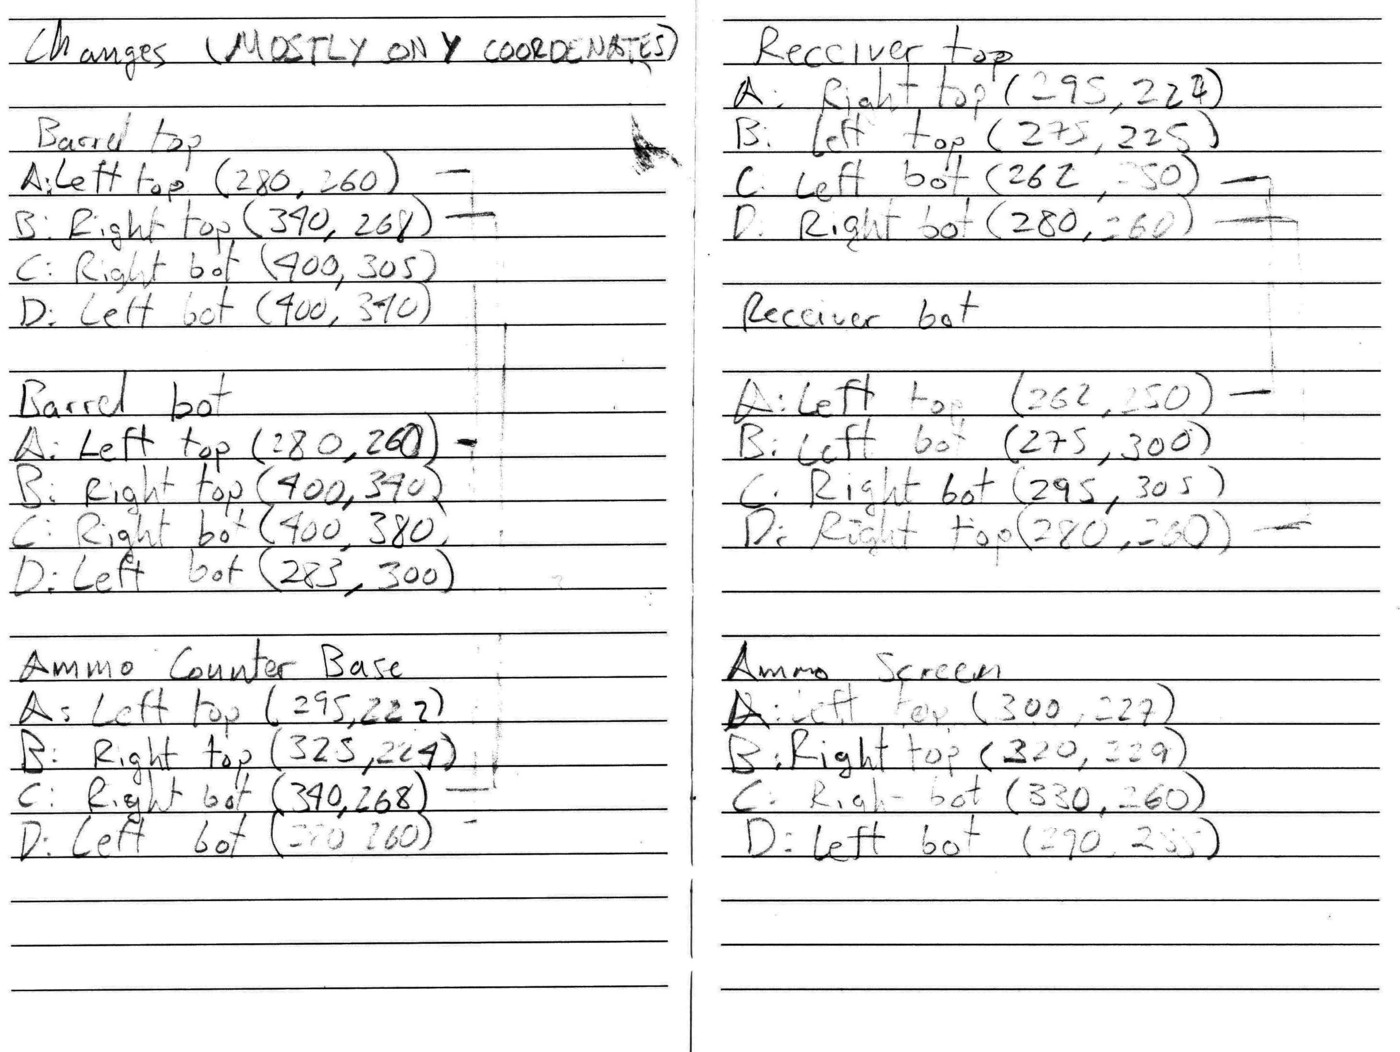 Changes (MOSTLY ON Y COORDENATES)
Barrel top
A: Left top (280, 260)
B: Right top (340, 268)
C: Right bot (400, 305)
D: Left bot (400, 340)
Barrel bot
A: Left top (280, 260)
B: Right top (400, 340)
C: Right bot (400, 380)
D: Left bot (283, 300)
Ammo Counter Base
A: Left top (295, 222)
B: Right top (325, 224)
C: Right bot (340, 268)
D: Left bot (280 260)
Recciver top
A: Right top (295, 222)
B: Left top (275, 225)
C. Left bot (262, 250)
D. Right bot (280, 260)
Receiver bot
A: Left top (262, 250)
B: Left bot (275, 300)
C. Right bot (295, 305)
D: Right top (280, 260)
Ammo Screen
A: Left top (300, 227)
B: Right top (320, 229)
C: Right bot (330, 260)
D: Left bot (290, 255)